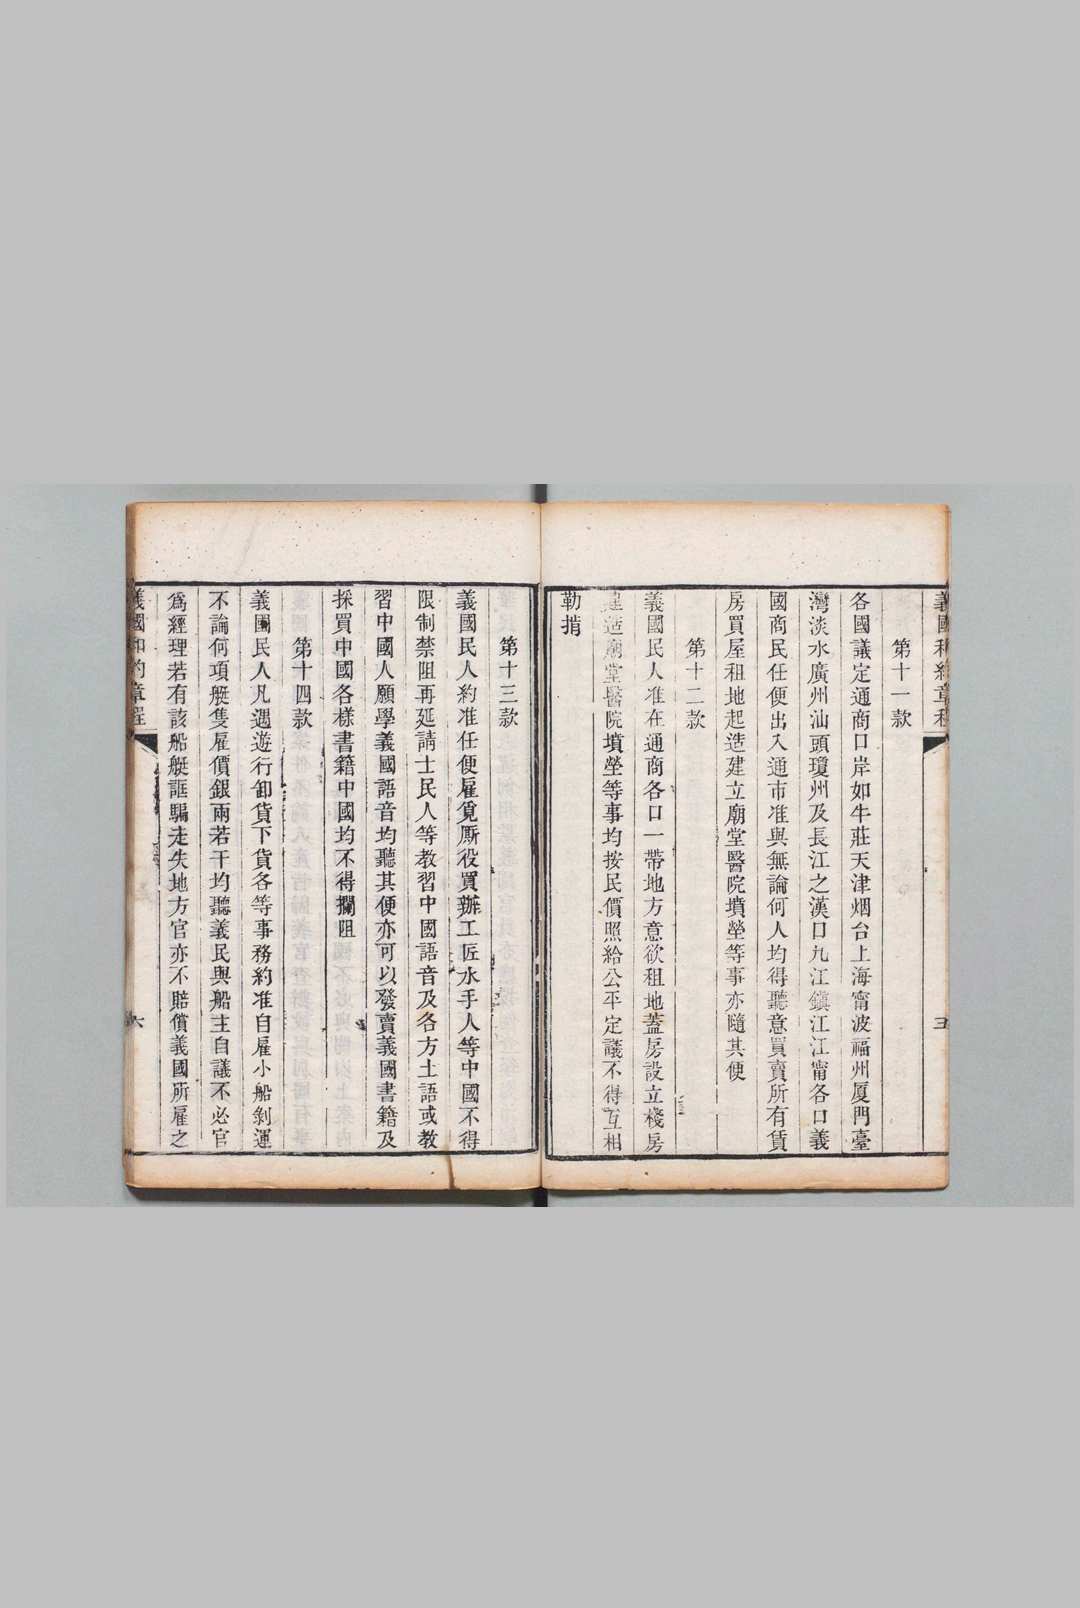 義國和約章程
五
第十一款
各國議定通商口岸如牛莊天津烟台上海甯波福州厦門臺
灣淡水廣州汕頭瓊州及長江之漢口九江鎭江江甯各口義
國商民任便出入通市准與無論何人均得聽意買賣所有貨
房買屋租地起造建立廟堂醫院墳塋等事亦隨其便
第十二款
義國民人准在通商各口一帶地方意欲租地蓋房設立棧房
建造廟堂醫院墳塋等事均按民價照給公平定議不得互相
勒掯
第十三款
義國民人約准任便雇覓厮役買辦工匠水手人等中國不得
限制禁阻再延請士民人等教習中國語音及各方土語或教
習中國人願學義國語音均聽其便亦可以發賣義國書籍及
採買中國各樣書籍中國均不得攔阻
第十四款
義國民人凡遇遊行卸貨下貨各等事務約准自雇小船剝運
不論何項艇隻雇價銀兩若干均聽義民與船主自議不必官
爲經理若有該船艇誆騙走失地方官亦不賠償義國所雇之
義國和約章程
六